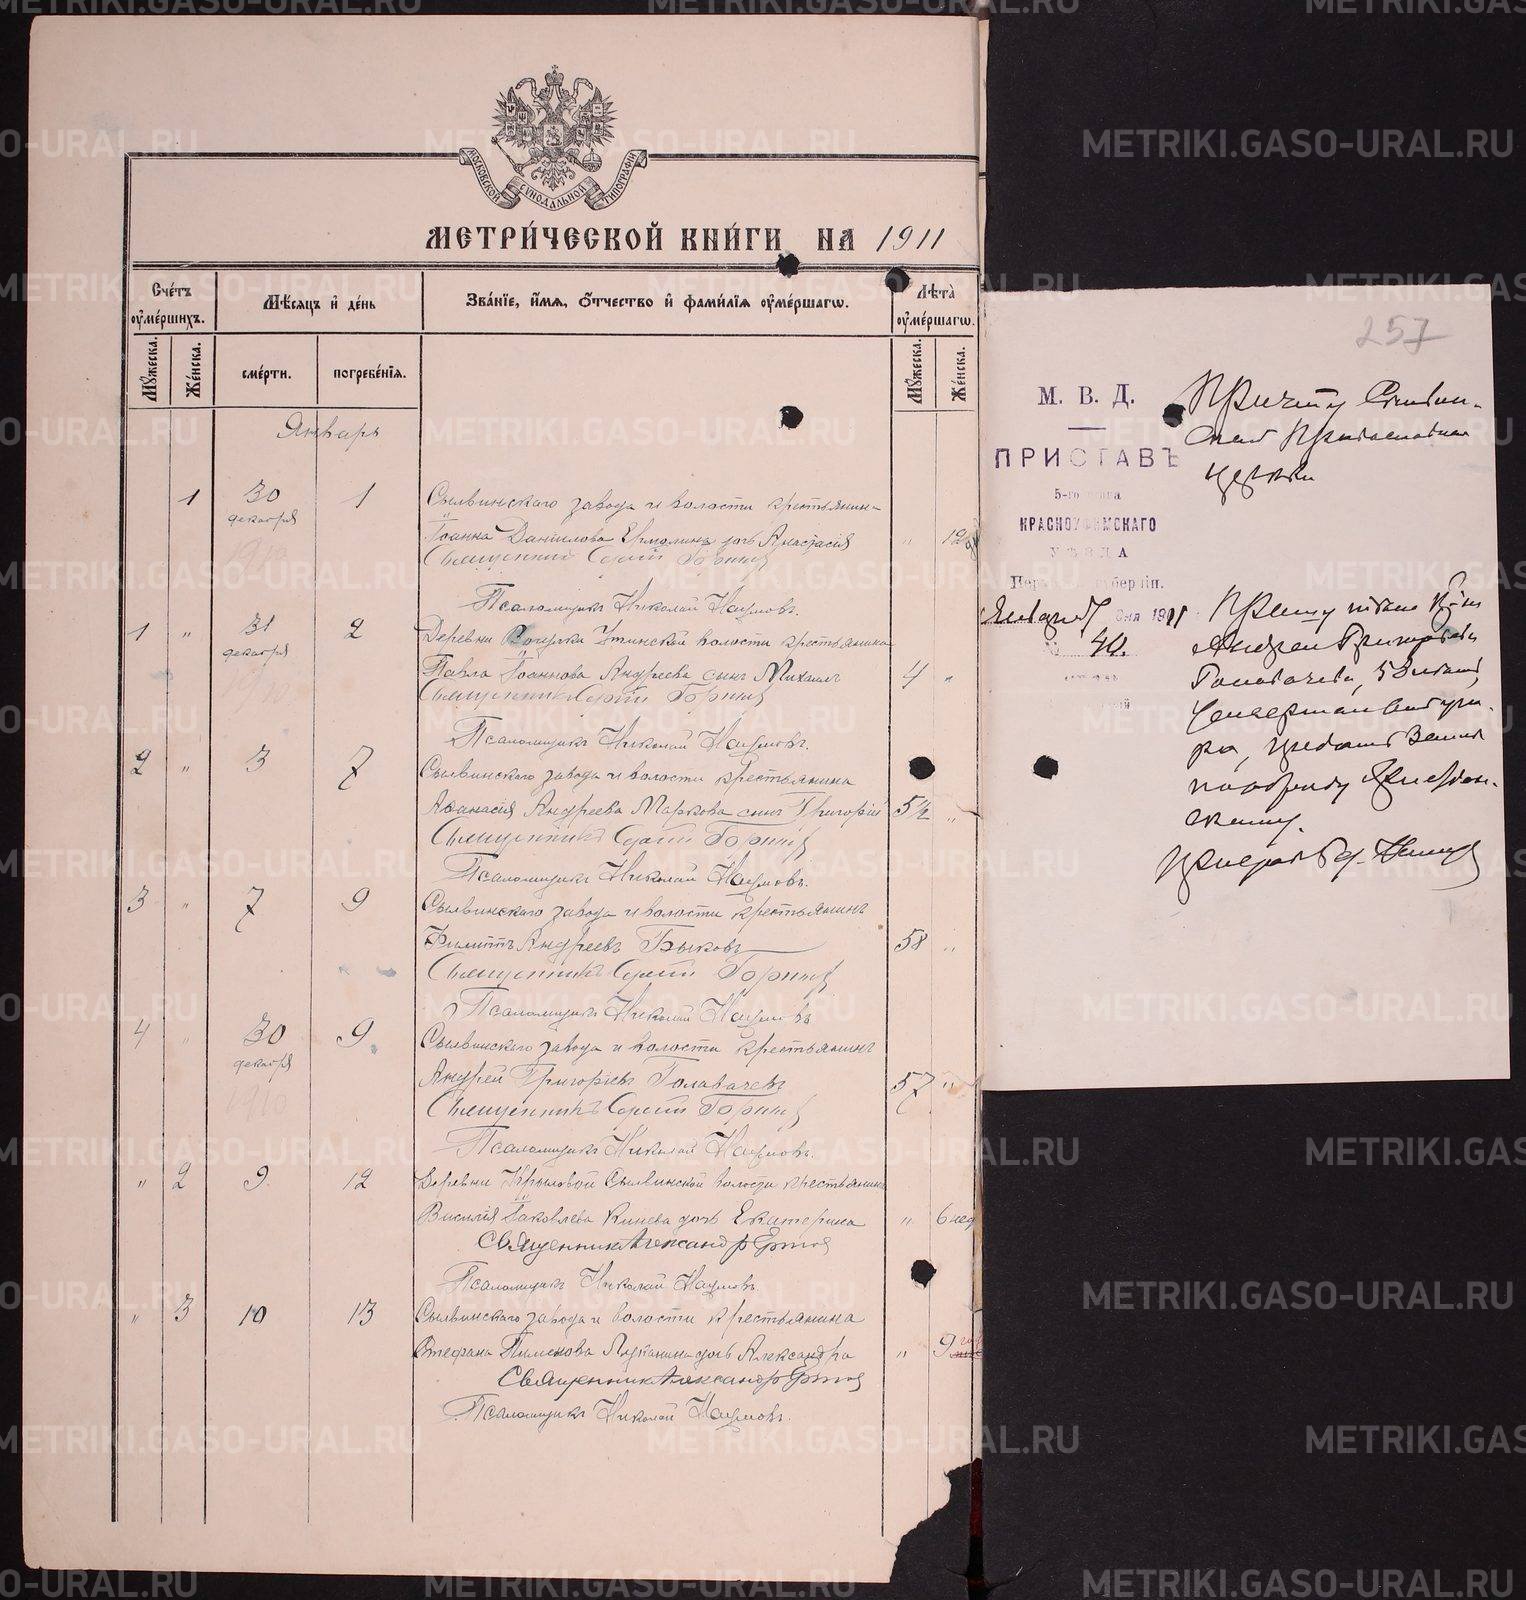 МОСКОВСКОЙ СУНОДАЛЬНОЙ ТИПОГРАФІИ
МЕТРИ́ЧЕСКОЙ КНИ́ГИ НА 1911
Сче́тъ оумéршихъ.
Мѣ́сяцъ и҆ де́нь
Зва́нїе, и҆́мѧ, ѻ҆́тчество и҆ фами́лїѧ оу҆ме́ршагѡ.
Лѣ́та оу҆ме́ршагѡ.
Мꙋ́жеска.
Же́нска.
сме́рти.
погребе́нїѧ.
Мꙋ́жеска.
Же́нска.
Январь
1 30 декабря 1 Сылвинскаго завода и волости крестьянина
Іоанна Даніилова Ермолина дочь Анастасія " 12
Священникъ Сергій
Псаломщикъ Николай Наумовъ.
1 " 31 декабря 2 Деревни Утинской волости крестьянина
Павла Іоаннова Андреева сынъ Михаилъ 4 "
Священникъ Сергій
Псаломщикъ Николай Наумовъ.
2 " 3 7 Сылвинскаго завода и волости крестьянина
Аѳанасія Андреева Маркова сынъ Григорій 5½ "
Священникъ Сергій
Псаломщикъ Николай Наумовъ.
3 " 7 9 Сылвинскаго завода и волости крестьянинъ
Филиппъ Андреевъ Быковъ 58 "
Священникъ Сергій
Псаломщикъ Николай Наумовъ
4 " 30 декабря 9 Сылвинскаго завода и волости крестьянинъ
Андрей Григоріевъ Голавачевъ 57 "
Священникъ Сергій
Псаломщикъ Николай Наумовъ.
" 2 9 12 Деревни Крыловой Сылвинской волости крестьянина
Василія Іаковлева Кинева дочь Екатерина " 6 нед
Священникъ Александръ
Псаломщикъ Николай Наумовъ.
" 3 10 13 Сылвинскаго завода и волости крестьянина
Стефана Пименова дочь Александра " 9
Священникъ Александръ
Псаломщикъ Николай Наумовъ.
257
М. В. Д.
ПРИСТАВЪ
5-го
КРАСНОУФИМСКАГО
УѢЗДА
губерніи.
Января 7 дня 1911
№ 40.
Причту Сылвин-
ской Православной
церкви
Андрея Григорьева
Головачева, 53 летъ,
предать земле
по обряду християн-
скому.
METRIKI.GASO-URAL.RU